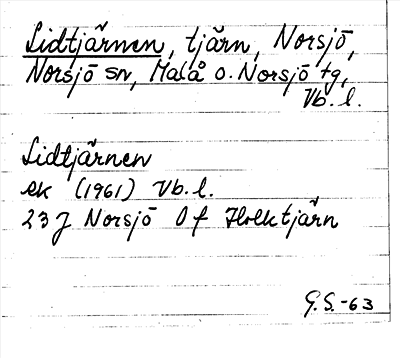 Lidtjärnen, tjärn, Norsjö,
Norsjö sn, Malå o. Norsjö tg,
Vb. l.
Lidtjärnen
ek (1961) Vb. l.
23 J Norsjö 0 f
G. S. -63